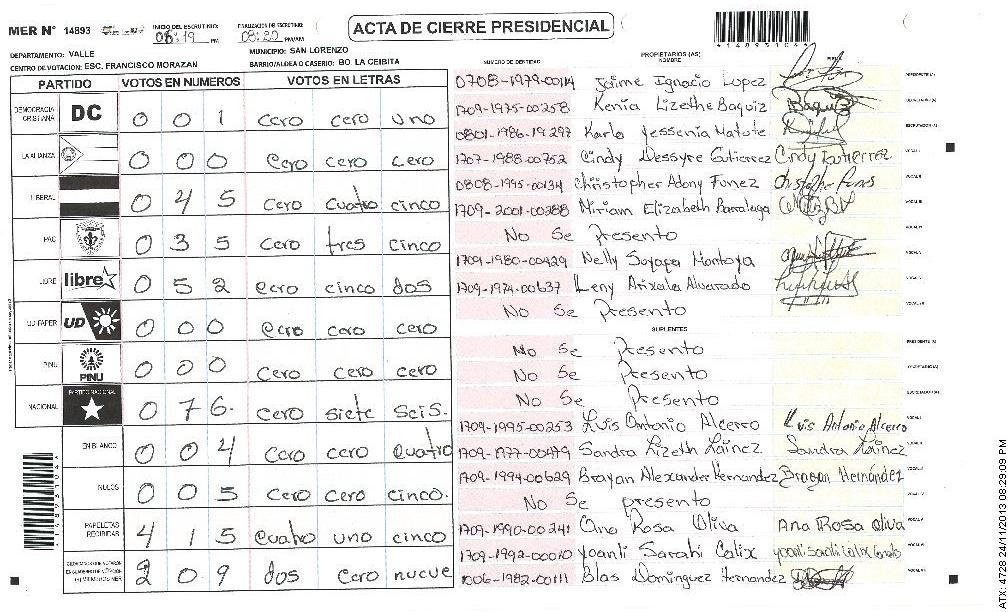 MER N° 14893
INICIO DEL ESCRUTINIO: 08:19 PM
FINALIZACION DE ESCRUTINIO: 08:20 PM/AM
ACTA DE CIERRE PRESIDENCIAL
148931044
DEPARTAMENTO: VALLE
MUNICIPIO: SAN LORENZO
CENTRO DE VOTACION: ESC. FRANCISCO MORAZAN
BARRIO/ALDEA O CASERIO: BO. LA CEIBITA
PARTIDO VOTOS EN NUMEROS VOTOS EN LETRAS
DEMOCRACIA CRISTIANA DC 0 0 1 cero cero uno
LA ALIANZA 0 0 0 cero cero cero
LIBERAL 0 4 5 cero cuatro cinco
PAC 0 3 5 cero tres cinco
LIBRE libre 0 5 2 cero cinco dos
UD/FAPER UD 0 0 0 cero cero cero
PINU PINU 0 0 0 cero cero cero
NACIONAL PARTIDO NACIONAL 0 7 6. cero siete seis.
EN BLANCO 0 0 4 cero cero cuatro
NULOS 0 0 5 cero cero cinco.
PAPELETAS RECIBIDAS 4 1 5 cuatro uno cinco
2 0 9 dos cero nueve
NUMERO DE IDENTIDAD PROPIETARIOS (AS) NOMBRE FIRMA
0708-1979-00114 Jaime Ignacio Lopez PRESIDENTE (A)
1709-1975-00258 Kenia Lizethe Baquiz Baquiz SECRETARIO (A)
0801-1986-19297 Karla Jessenia Matute ESCRUTADOR (A)
1707-1988-00752 Cindy Dessyre Gutierrez Cindy Gutierrez VOCAL I
0808-1995-00134 Christopher Adony Funez Christopher Funes VOCAL II
1709-2001-00288 Miriam Elizabeth Barralaga VOCAL III
No Se presento VOCAL IV
1709-1980-00429 Nelly Soyapa Montoya VOCAL V
1709-1974-00637 Leny Arixala Alvarado VOCAL VI
No Se presento VOCAL VII
SUPLENTES
No Se presento PRESIDENTE (A)
No Se presento SECRETARIO (A)
No Se presento ESCRUTADOR (A)
1709-1995-00253 Luis Antonio Alcerro Luis Antonio Alcerro VOCAL I
1709-1977-00479 Sandra Lizeth Láinez Sandra Láinez VOCAL II
1709-1994-00629 Brayan Alexander Hernandez Brayan Hernández VOCAL III
No Se presento
1709-1990-00241 Ana Rosa Oliva Ana Rosa Oliva VOCAL V
1709-1992-00010 Yoanli Sarahi Calix VOCAL VI
1006-1982-00111 Blas Dominguez Hernandez VOCAL VII
148931044
ATX: 4728 24/11/2013 08:29:09 PM